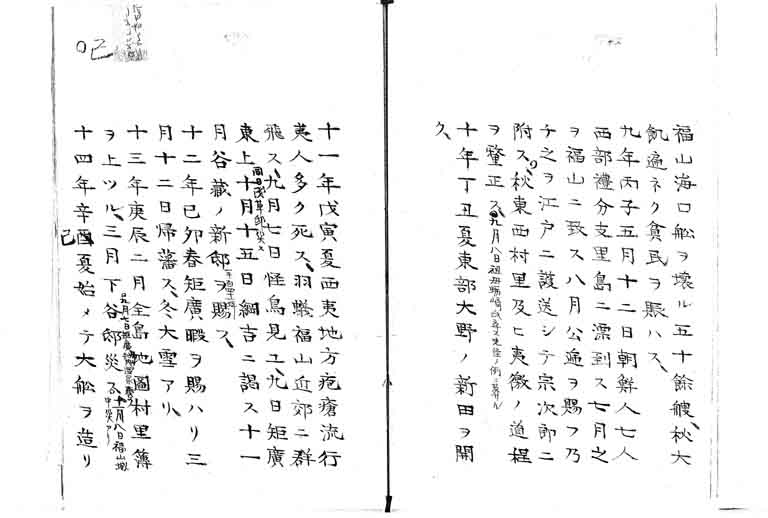 福山海口舩ヲ壞ル五十餘艘、秋大
飢遍ネク貧民ヲ賑ハス、
九年丙子五月十二日朝鮮人七人
西部禮分支里島ニ漂到ス七月之
ヲ福山ニ致ス八月公遍ヲ賜フ乃
チ之ヲ江戸ニ護送シテ宗次郎ニ
附ス、秋東西村里及ヒ夷徼ノ道程
ヲ釐正ス、九月八日祖母蠣崎氏卒ス先塋ノ側ニ葬ル
十年丁丑夏東部大野ノ新田ヲ開
ク、
十一年戊寅夏西夷地方疱瘡流行
夷人多ク死ス、羽蟻福山近郊ニ群
飛ス、九月七日怪鳥見ユ、九日矩廣
東上十月十五日綱吉ニ謁ス十一
月谷藏ノ新邸ヲ賜フ、
十二年己卯春矩廣暇ヲ賜ハリ三
月十二日帰藩ス、冬大雪アリ、
十三年庚辰二月全島地圖村里簿
ヲ上ツル、三月下谷邸災ス
十一月八日福山城中災アリ
十四年辛酉夏始メテ大舩ヲ造リ
己
○己